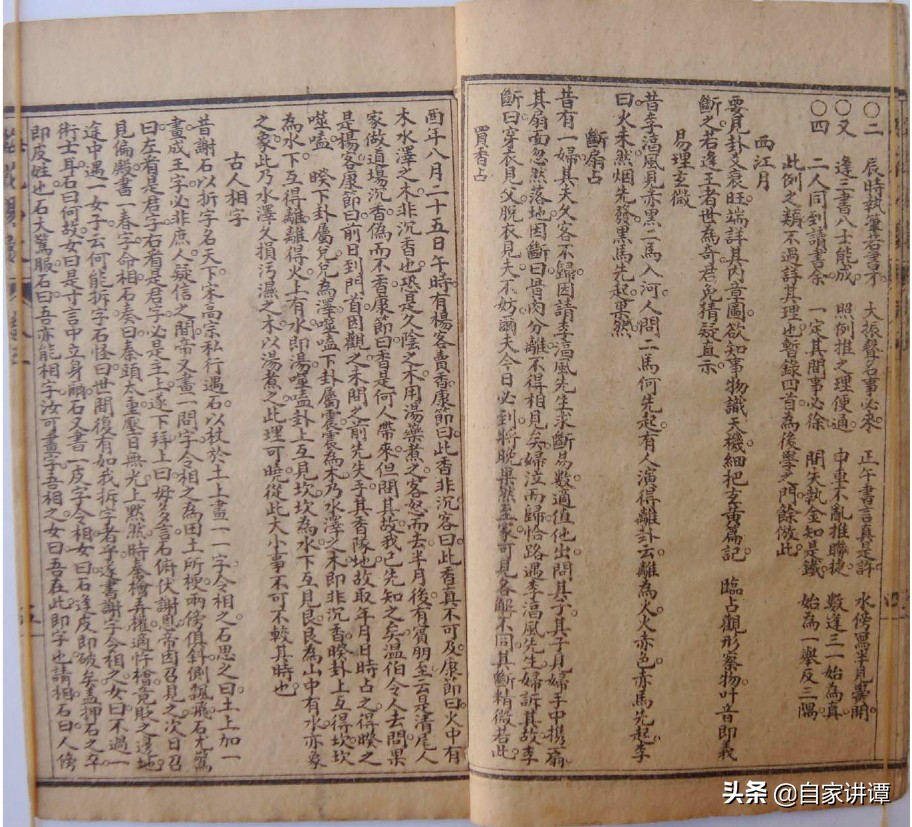 〇二　辰時執筆若書才　大振聲名事必來　正午書言真是許　水傍寫半見
〇又　逢三書八士能成　照例推之理便通　中車不亂推聯捷　數逢三一始為真
〇四　二人同到讀書余　一定其間事必徐　問天執金知是鐵　始為一舉反三隅
此例之類不過詳其理也暫錄四首為後學之門餘倣此
西江月
要見卦爻衰旺端詳其內章圖欲知事物識天機細把玄黃篇記　臨占觀形察物叶音即義
斷之若逢王者世為奇君免猜疑直示
易理玄微
昔李淳風見赤黑二馬入河人問二馬何先起有人演得離卦云離為火火赤色赤馬先起李
曰火未然烟先發黑馬先起果然
斷扇占
昔有一婦其夫久客不歸因請李淳風先生求斷易數適值他出問其子其子見婦手中携一扇
其扇面忽然落地因斷曰骨肉分離不得相見矣婦泣而歸恰路遇李淳風先生婦訴其故李
斷曰穿衣見父脫衣見夫不妨爾夫今日必到將晚果然至家可見各解不同其斷精微若此
買香占
酉年八月二十五日午時有楊客賣香康節曰此香非沉客曰此香真不可及康節曰火中有
木水澤之木非沉香也恐是久陰之木用湯藥煮之客怒而去半月後有賓朋至云是清尾人
家做道場沉香偽而不香康節曰香是何人帶來但問其故我已先知之矣溫伯令人去問果
是楊客康節曰前日到門首因觀之未問之前先失手其香隊地故取年月日時占之得睽之
噬嗑　睽下卦屬兌兌為澤噬嗑下卦屬震震為木乃水澤之木即非沉香睽卦上互得坎坎
為水下互得離離得火上有水即湯噬嗑卦上互見坎坎為水下互見艮艮為山中有水亦象
之象此乃水澤久損污濕之木以湯煮之此理可曉從此大小事不可不較其時也
古人相字
昔謝石以拆字名天下宋高宗私行遇石以杖於土上畫一一字令相之石思之曰土上加一
畫成王字必非庶人疑信之間帝又畫一問字令相之為田土所梗兩傍俱斜側飄飛石尤篤
曰左看是君字右看是君字必是主上遂下拜上曰毋多言石俯伏謝恩帝因召見之次日召
見偏殿書一春字命相石奏曰秦頭太重壓日無光上默然時秦檜弄權適忤檜竟貶之邊地
途中遇一女子云何能拆字石怪曰世間復有如我拆字者卒遂書謝字令相之女曰不過一
術士耳石曰何故女曰是寸言中立身爾石又書一皮字令相女曰石逢皮即破矣蓋押石之卒
即皮姓也石大驚服石曰吾亦能相字汝可畫字吾相之女曰吾在此即字也請相石曰人傍
头条 @自家讲谭